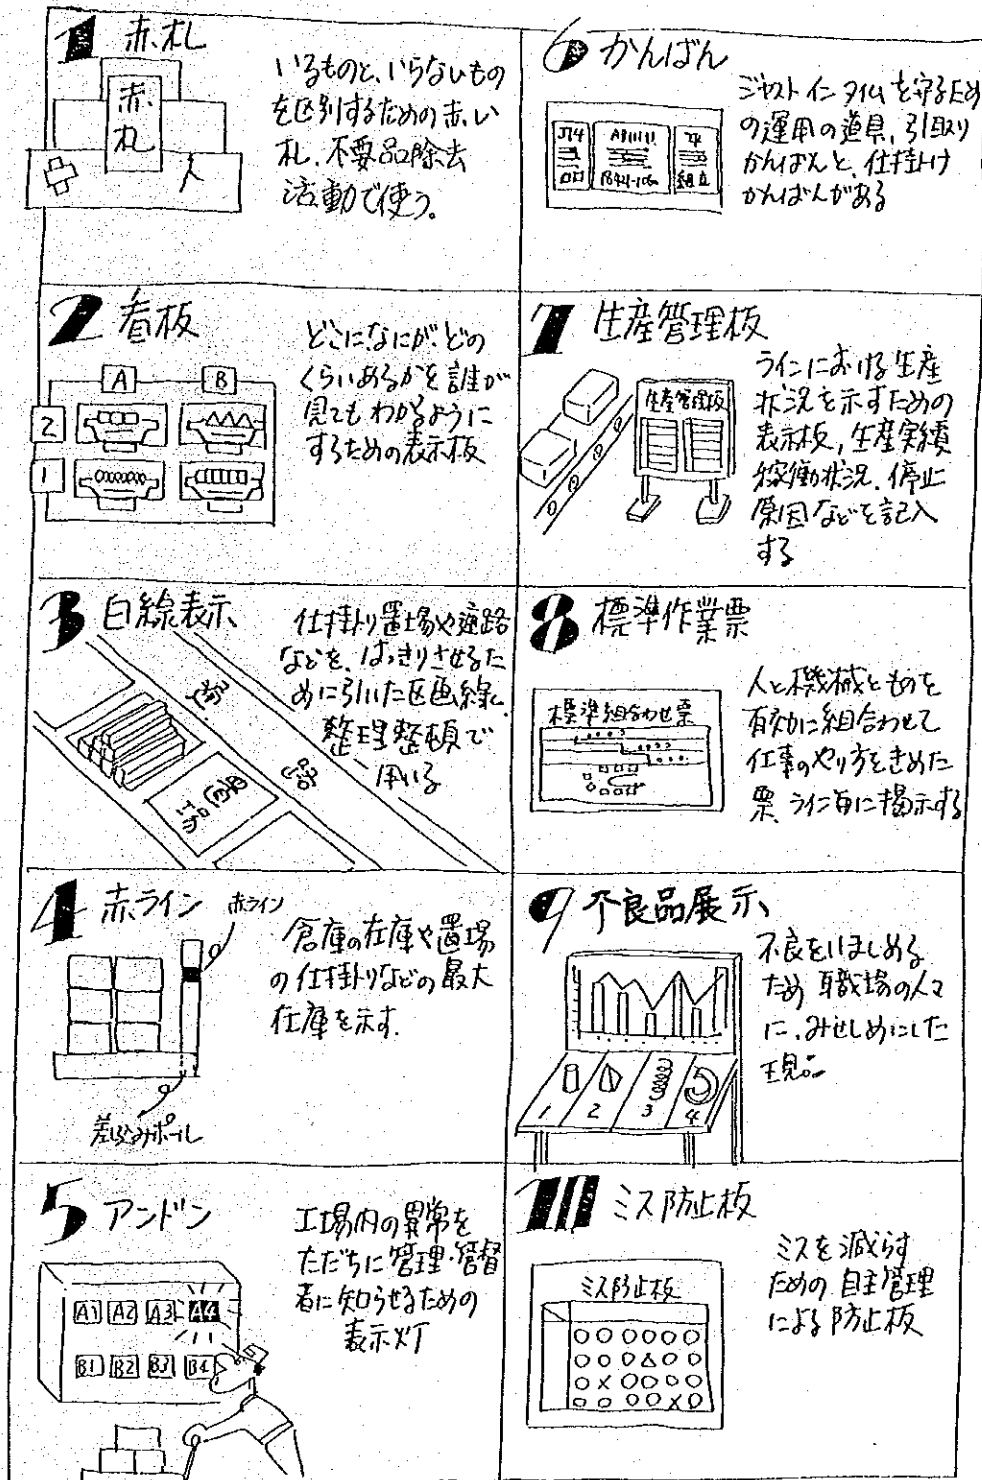 1 赤札
赤
札
いるものと、いらないもの
を区別するための赤い
札、不要品除去
活動で使う。
2 看板
A B
2
1
どこになにが、どの
くらいあるかを誰が
見てもわかるように
するための表示板
3 白線表示
仕掛り置場や通路
などを、はっきりさせるた
めに引いた区画線、
整理整頓で
用いる
4 赤ライン
赤ライン
倉庫の在庫や置場
の仕掛りなどの最大
在庫を示す.
差し込みポール
5 アンドン
A1 A2 A3 A4
B1 B2 B3 B4
工場内の異常を
ただちに管理・監督
者に知らせるための
表示灯
6 かんばん
ジャストインタイムを守るため
の運用の道具、引取り
かんばんと、仕掛け
かんばんがある
組立
7 生産管理板
生産管理板
ラインにおける生産
状況を示すための
表示板、生産実績
稼働状況、停止
原因などを記入
する
8 標準作業票
標準組合わせ票
人と機械とものを
有効に組合わせて
仕事のやり方をきめた
票、ライン毎に掲示する
9 不良品展示
1 2 3 4
不良をいましめる
ため 職場の人々
に、みせしめにした
現品
10 ミス防止板
ミス防止板
ミスを減らす
ための自主管理
による防止板